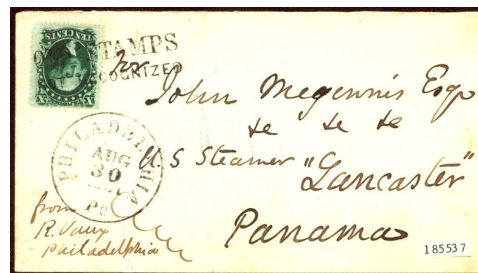 TEN CENTS
X X
OLD STAMPS
NOT RECOGNIZED
For
John Megennis Esqr
&c &c &c
U S Steamer "Lancaster"
Panama
PHILADELPHIA
AUG
30
Pa
from
R. Vaux
Philadelphia
185537